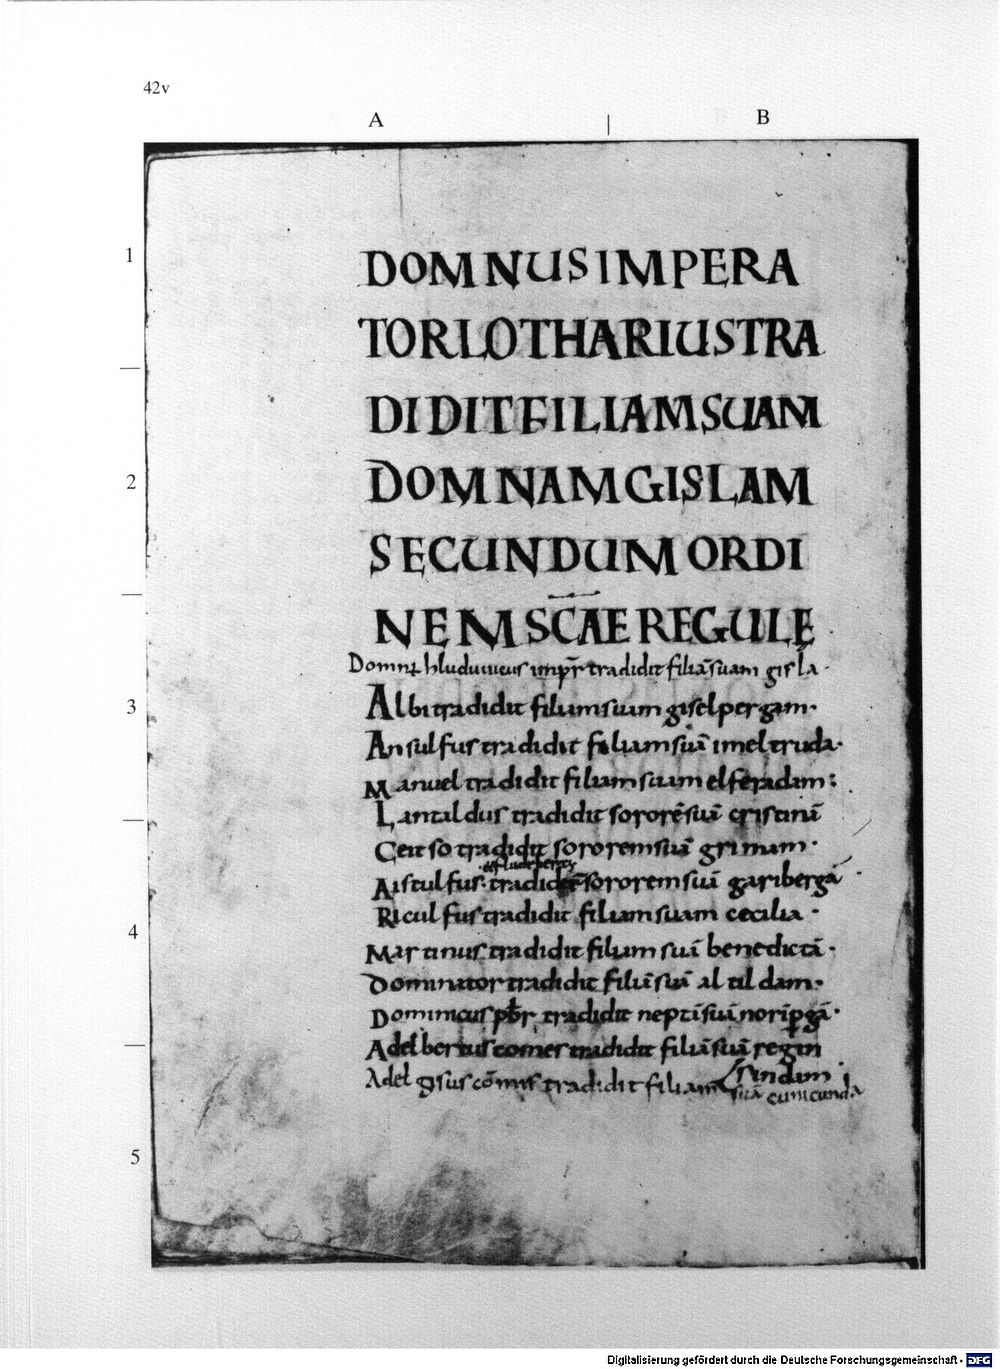 42v
A | B
1
DOMNUS IMPERA
TOR LOTHARIUS TRA
DIDIT FILIAM SUAM
2
DOMNAM GISLAM
SECUNDUM ORDI
NEM SC̄AE REGULĘ
Domn; hluduuicus imp̄r tradidit filiā suam gisla·
3
Albi tradidit filiam suam giselpergam·
Ansulfus tradidit filiam suā imeltruda·
Manuel tradidit filiam suam elferadam:
Lantaldus tradidit sororē suā cristinā
Ceitso tradidit sororem suā grimam·
Aistulfus· tradidit sororem suā garibergā·
Riculfus tradidit filiam suam cecilia·
4
Martinus tradidit filiam suā benedictā·
Dominator tradidit filiā suā altildam·
Dominicus pb̄r tradidit neptē suā noripgā·
Adelbertus comes tradidit filiā suā regin
sindam·
Adelgisus comis tradidit filiam
suā cunicunda
5
Digitalisierung gefördert durch die Deutsche Forschungsgemeinschaft - DFG